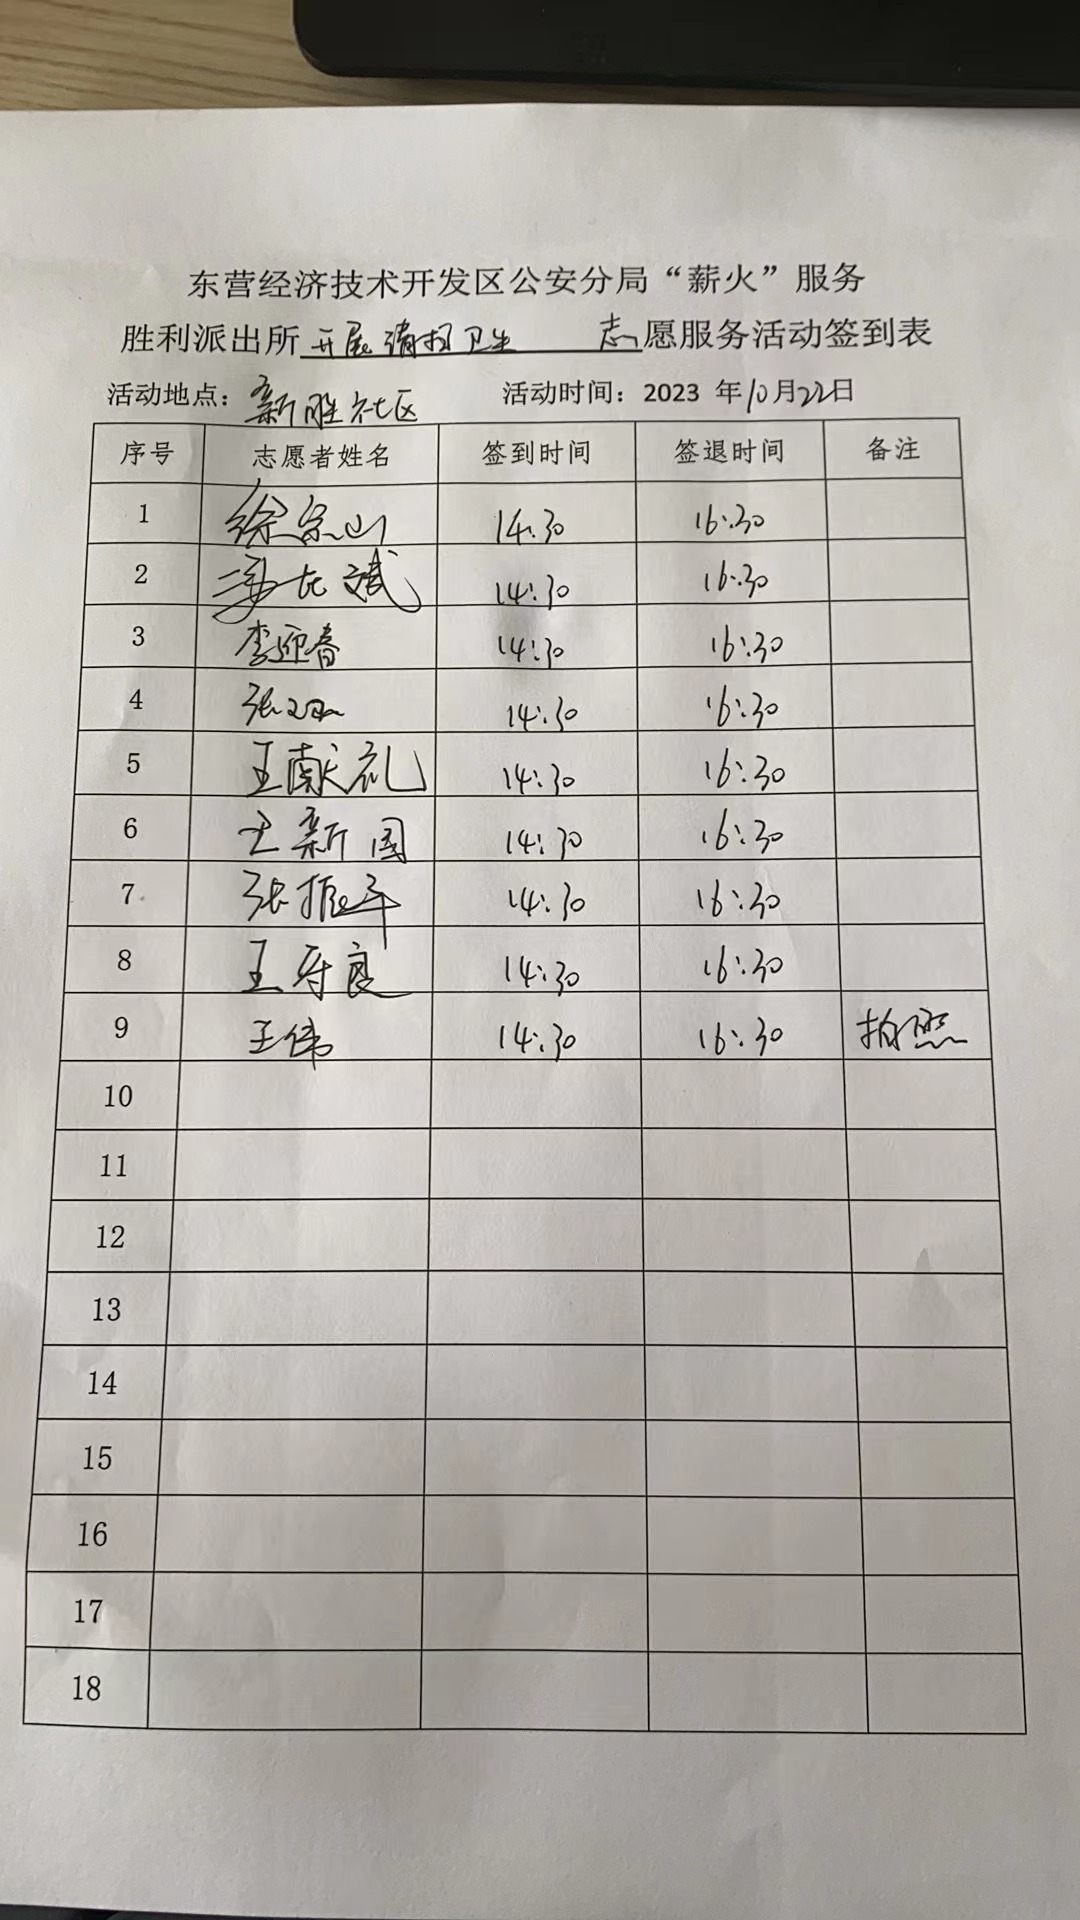 东营经济技术开发区公安分局“薪火”服务
胜利派出所开展清扫卫生 志愿服务活动签到表
活动地点：新胜社区 活动时间：2023 年10月22日
序号 志愿者姓名 签到时间 签退时间 备注
1 徐宗山 14:30 16:30
2 14:30 16:30
3 李迎春 14:30 16:30
4 张 14:30 16:30
5 王献礼 14:30 16:30
6 王新国 14:30 16:30
7 张振军 14:30 16:30
8 王守良 14:30 16:30
9 王伟 14:30 16:30 拍照
10
11
12
13
14
15
16
17
18